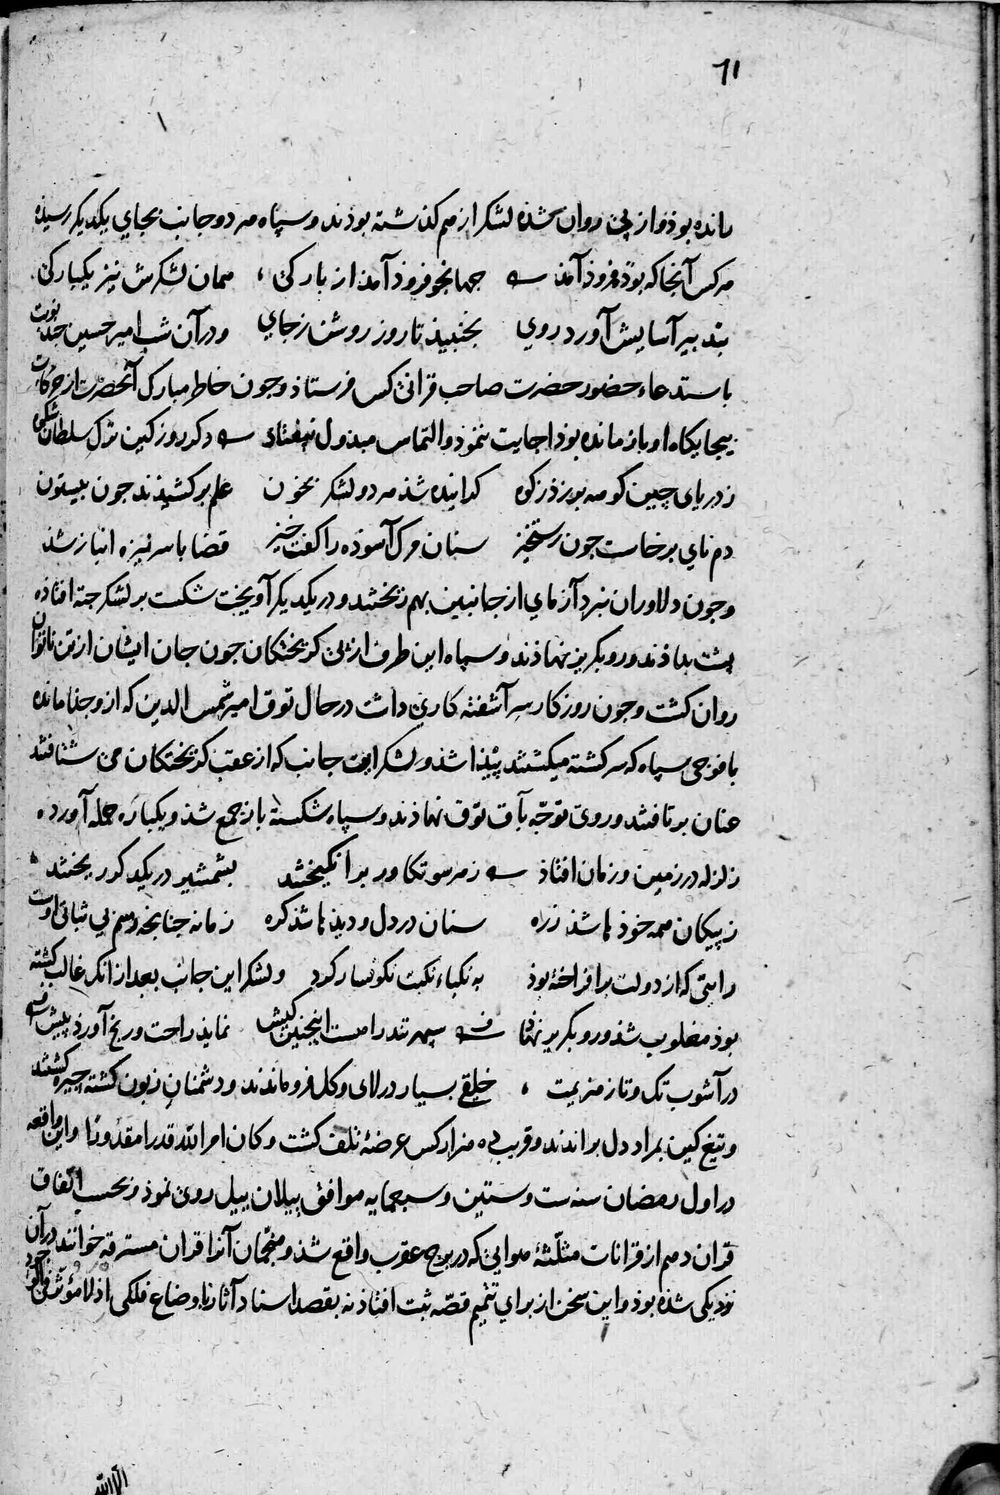 ٦١
رانده بوذ و از پی روان شذه لشکر از هم کذشته بوذند و سپاه هر دو جانب بجای یکدیکر رسیذه
هر کس آنجا که بوذ فروذ آمذ جهانجو فروذ آمذ از بارکی همان لشکرش نیز یکبارکی
بتدبیر آسایش آورد روی بخنبیذ تا روز روشن ز جای و در آن شب امیر حسین چند نوبت
باستدعاء حضور حضرت صاحب قرانی کس فرستاذ و جون خاطر مبارک آنحضرت از حرکات
بیجایکاه او باز مانده بوذ اجابت ننموذ و التماس مبذول نیفتاد دکر روز کین ترک سلطان شکوه
ز دریای چین کوهه بر زذ ز کوه کراینده شذ هر دو لشکر بخون علم بر کشیذند جون بیستون
دم نای برخاست جون رستخیز سنان مرک آسوذه را کفت خیز قضا با سر نیزه انباز شذ
و جون دلاوران نبرد آزمای از جانبین بهم ریختند و در یکدیکر آویخت شکست بر لشکر جته افتاذه
پشت بداذند و رو بکریز نهاذند و سپاه این طرف از پی کریختکان جون جان ایشان از تن ناتوان
روان کشت و جون روزکار سر آشفته کاری داشت در حال توق امیر شمس الدین که از و جدا مانده
با فوجی سپاه که سرکشته میکشتند پیذا شذ و لشکر این جانب که از عقب کریختکان می شتافتند
عنان برتافتند و روی توجّه بآن توق نهاذند و سپاه شکسته باز جمع شذ و یکباره حمله آورده
زلزله در زمین و زمان افتاذ ز هر سو تکاور بر انکیختند بشمشیر در یکدکر ریختند
ز پیکان همه خوذ ها شذ زره سنان در دل و دیذه ها شذ کره زمانه جنانجه رسم بی ثباتی اوست
رایتی که از دولت بر افراخته بوذ به نکباء نکبت نکونسار کرد و لشکر این جانب بعد از انک غالب کشته
بوذ مغلوب شذ و رو بکریز نهاذ سپهر تند را هست اینچنین کیش نمایذ راحت و رنج آورذ پیش
در آشوب تک و تاز هزیمت خلقی بسیار در لای و کل فرو ماندند و دشمنان زبون کشته چیره کشتند
و تیغ کین بمراد دل براندند و قریب ده هزار کس عرضهٔ تلف کشت و کان امر الله قدرا مقدورا و این واقعه
در اول رمضان سنه ست و ستین و سبعمایه موافق ییلان ییل روی نموذ و بحسب اتفاق
قران دهم از قرانات مثلّثهٔ هوایی که در برج عقرب واقع شذ و منجّمان آنرا قران مسترقه خوانند در آن
نزدیکی شذه بوذ و این سخن از برای تتمیم قصّه ثبت افتاذ نه بقصد اسناد آثار باوضاع فلکی اذ لا مؤثر فی الوجود
الا الله